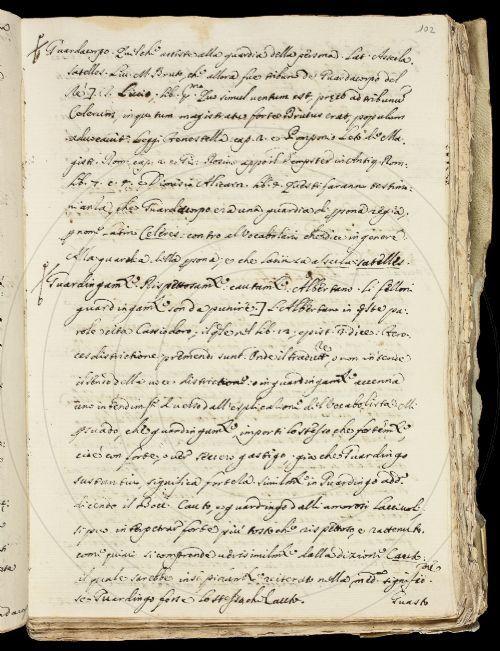 102
Guardacorpo. Quel che assiste alla guardia della persona. Lat. Assecla.
Satelles. Liu. M. Bruto, che allora fue tribuno de Guardacorpo del
Re.] T. Liuio, lib. p.mo Quo simul uentum est, preco ad tribunum
Celerum, in quo tum magistratu forte Brutus erat, populum
aduocauit. Leggi Fenestella cap. 2. e Pomponio Leto de Ma-
gist. Rom. cap. 2. e Gio. Rosino appo il Dempster in Antiq. Rom.
lib. 7. e Dionisio Alicarn. lib. 2. Questi faranno testimo-
nianza, che Guardacorpo era una guardia di persona regia,
Celeres: contro al Vocabolari che dice in genere
Alla guardia della persona, e che latin sia assecla satelles.
Guardingam.te Rispettosam.te cautam.te Albertano. Li felloni
guardingam.te son da punire.] L'Albertano in queste pa-
role cita Cassiodoro, il quale nel lib. 12. epist. dice. Fero-
ces districtione premendi sunt. Onde il tradutt.re o non intende
il senso della uoce districtione: o in guardingam.te accenna
uno intendim.to diuerso dall'esplicatione del Vocabolista. Mi
persuado, che guardingam.te importi lo stesso che fortem.te,
cioè con forte, o uer seuero gastigo, già che Guardingo
sustantiuo significa fortezza. Similm.te in Guardingo add.
dicendo il Bocc. Cauto, e guardingo dalli amorosi lacciuol.
si puo interpetrar forte più tosto che rispettoso e rattenuto.
come può si comprende uerisimilm.te dalla dizione Cauto:
il quale sarebbe uanamente reiterato nella med.ma signific.
se Guardingo fosse lo stesso che Cauto.
Guasto